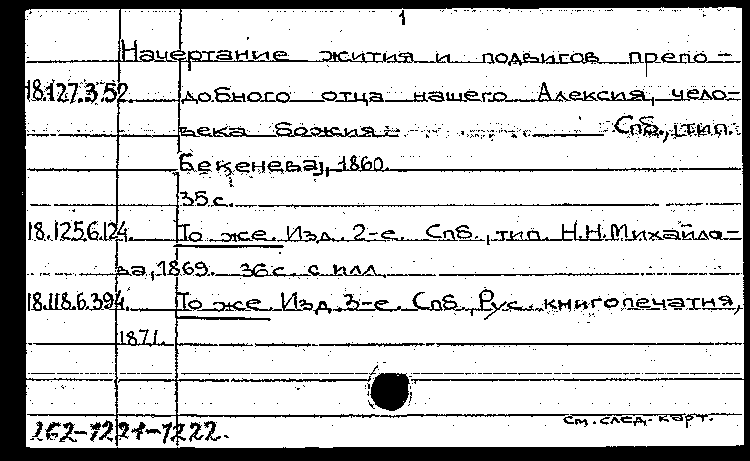 1
Начертание жития и подвигов препо-
18.127.3.52. добного отца нашего Алексия, чело-
века божия. Спб., тип.
Бекенева, 1860.
35 с.
18.125.6.124. То же. Изд. 2-е. Спб., тип. Н.Н.Михайло-
ва, 1869. 36 с. с илл.
18.118.6.394. То же. Изд. 3-е. Спб., Рус. книгопечатня,
1871.
см. след. карт.
262-1221-1222.